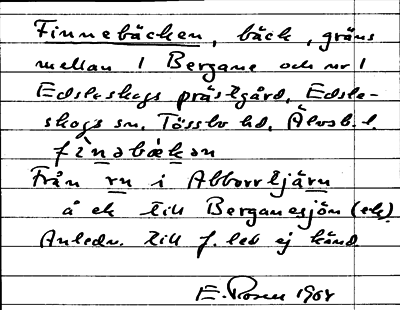 Finnebäcken, bäck, gräns
mellan 1 Bergane och nr 1
Edsleskogs prästgård, Edsle-
skogs sn, Tössbo hd, Älvsb. l.
fìnəbæ̀kən
Från rn i Abborrtjärn
å ek till Berganesjön (ek).
Anledn. till f. leb ej känd.
E. Rosen 1964